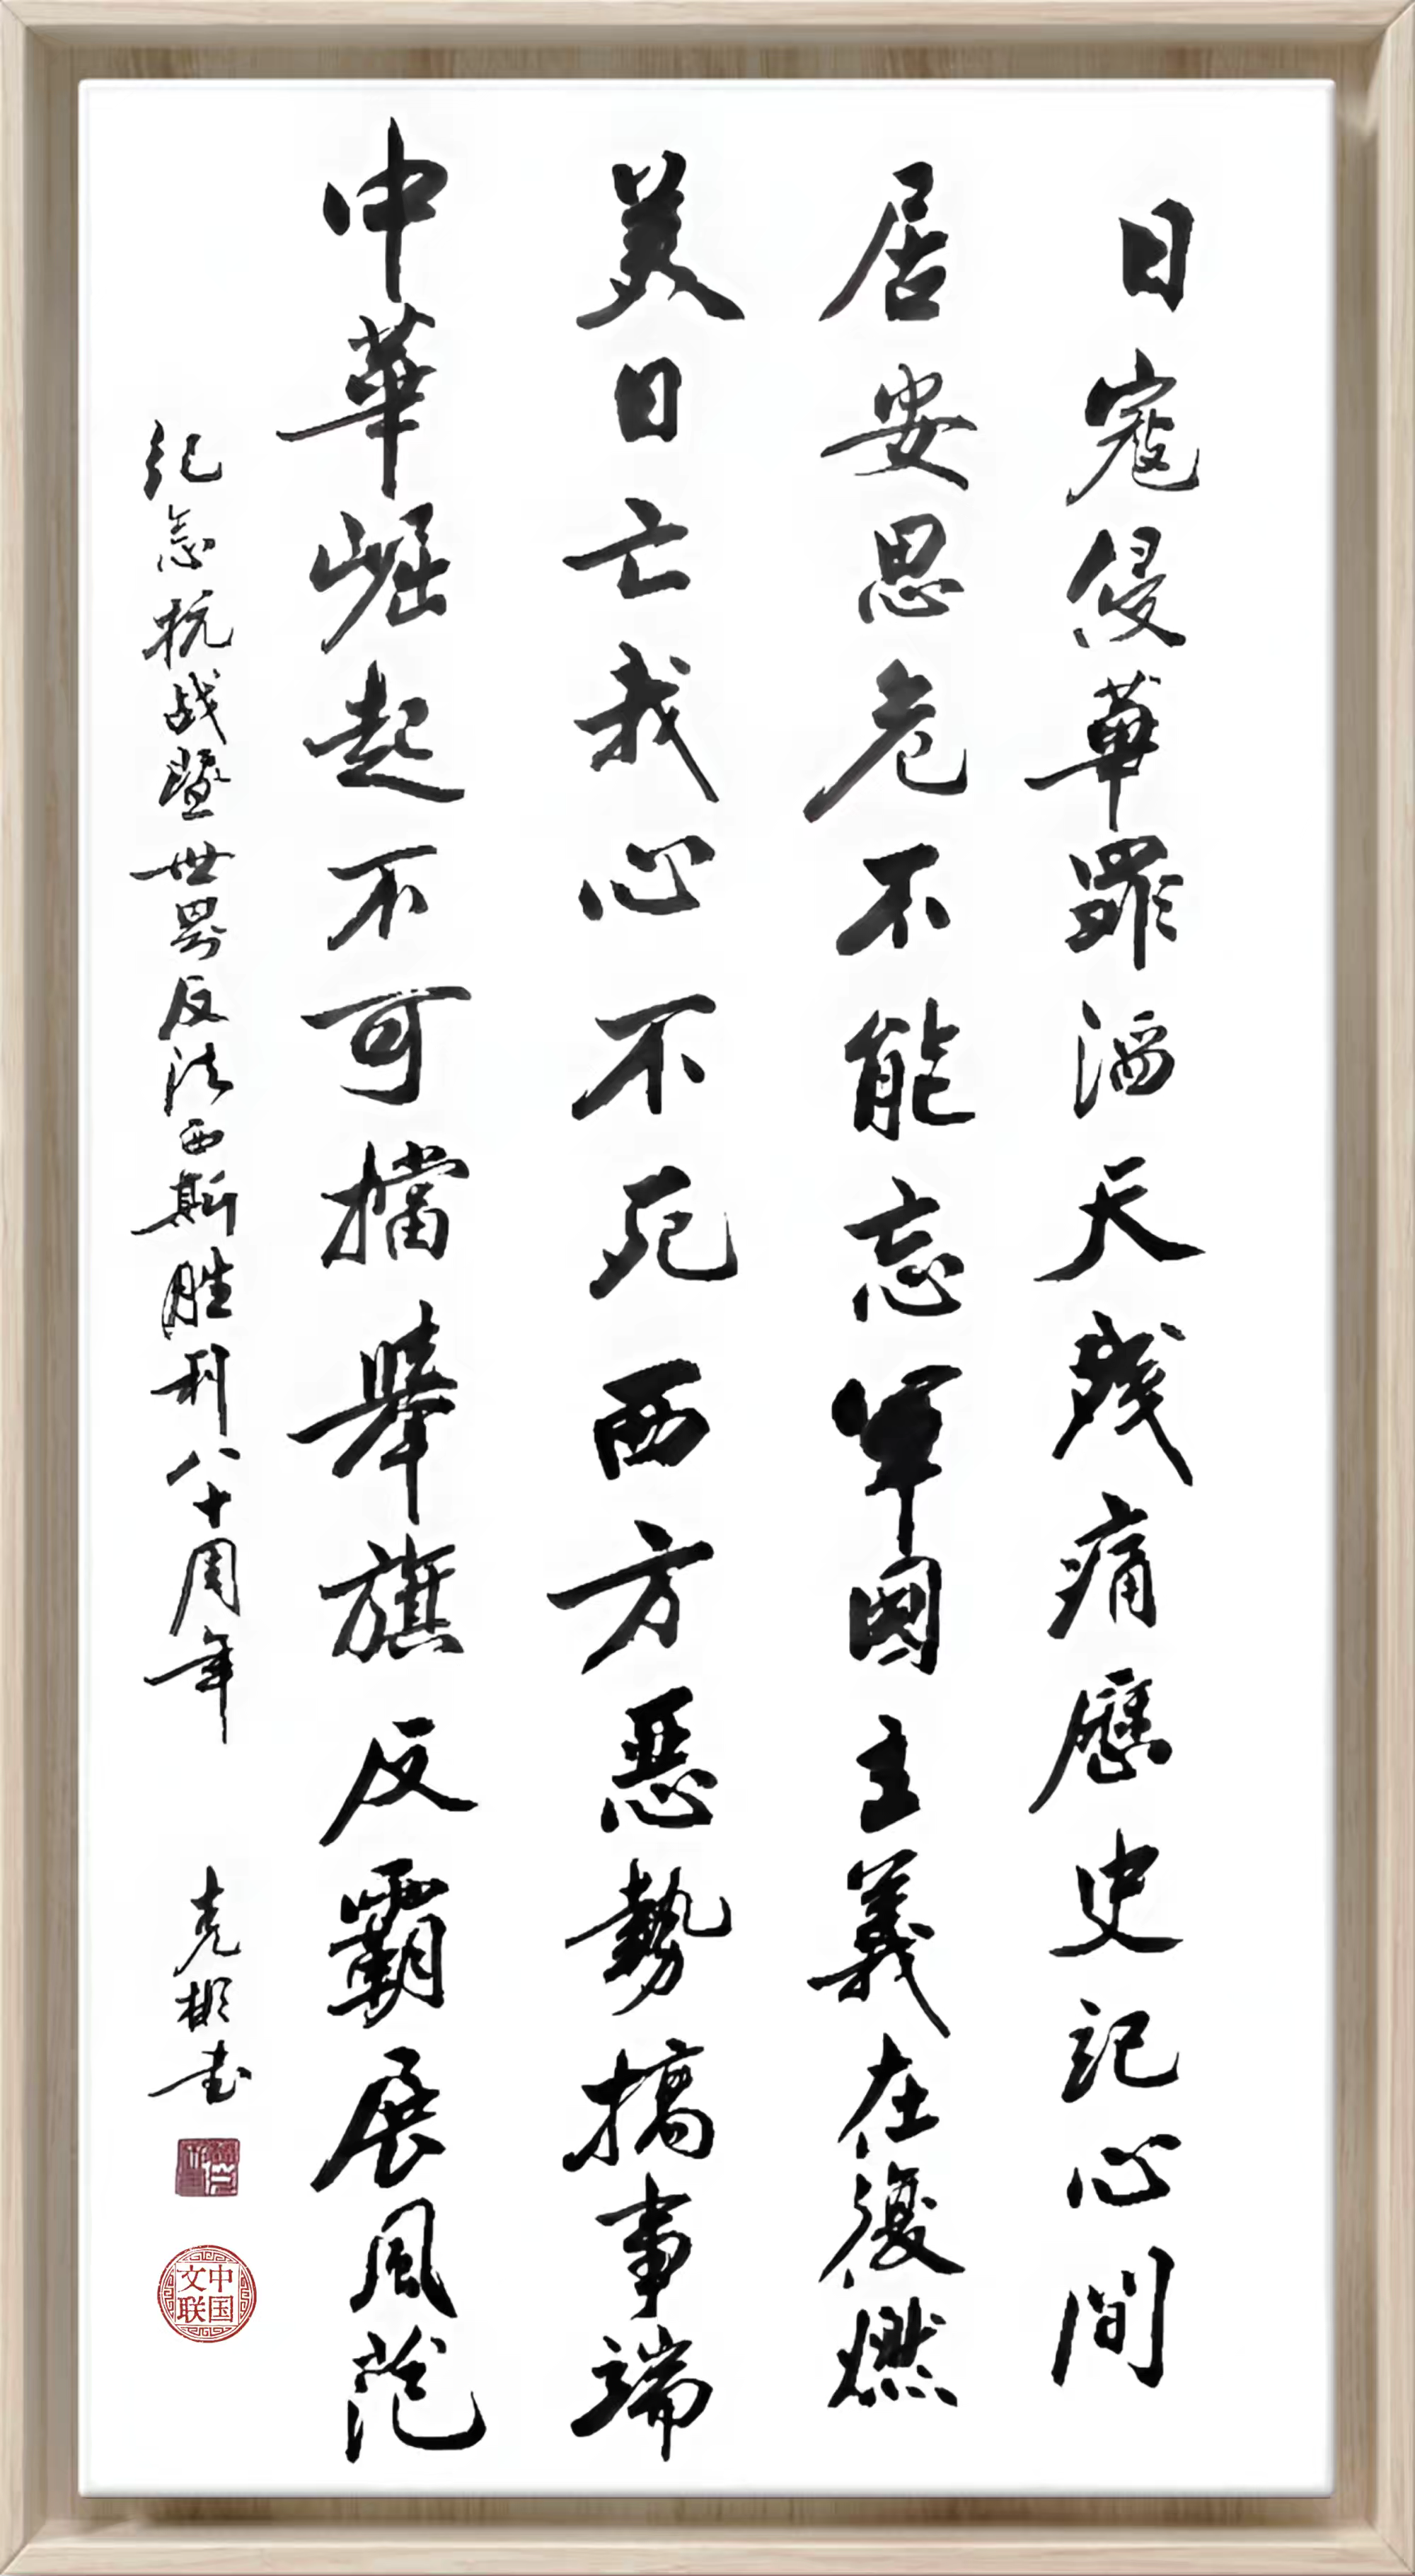 日寇侵華罪滔天殘痛歷史記心間
居安思危不能忘軍國主義在復燃
美日亡我心不死西方惡勢搞事端
中華崛起不可擋舉旗反霸展風范
纪念抗战暨世界反法西斯胜利八十周年
克彬书
中国文联